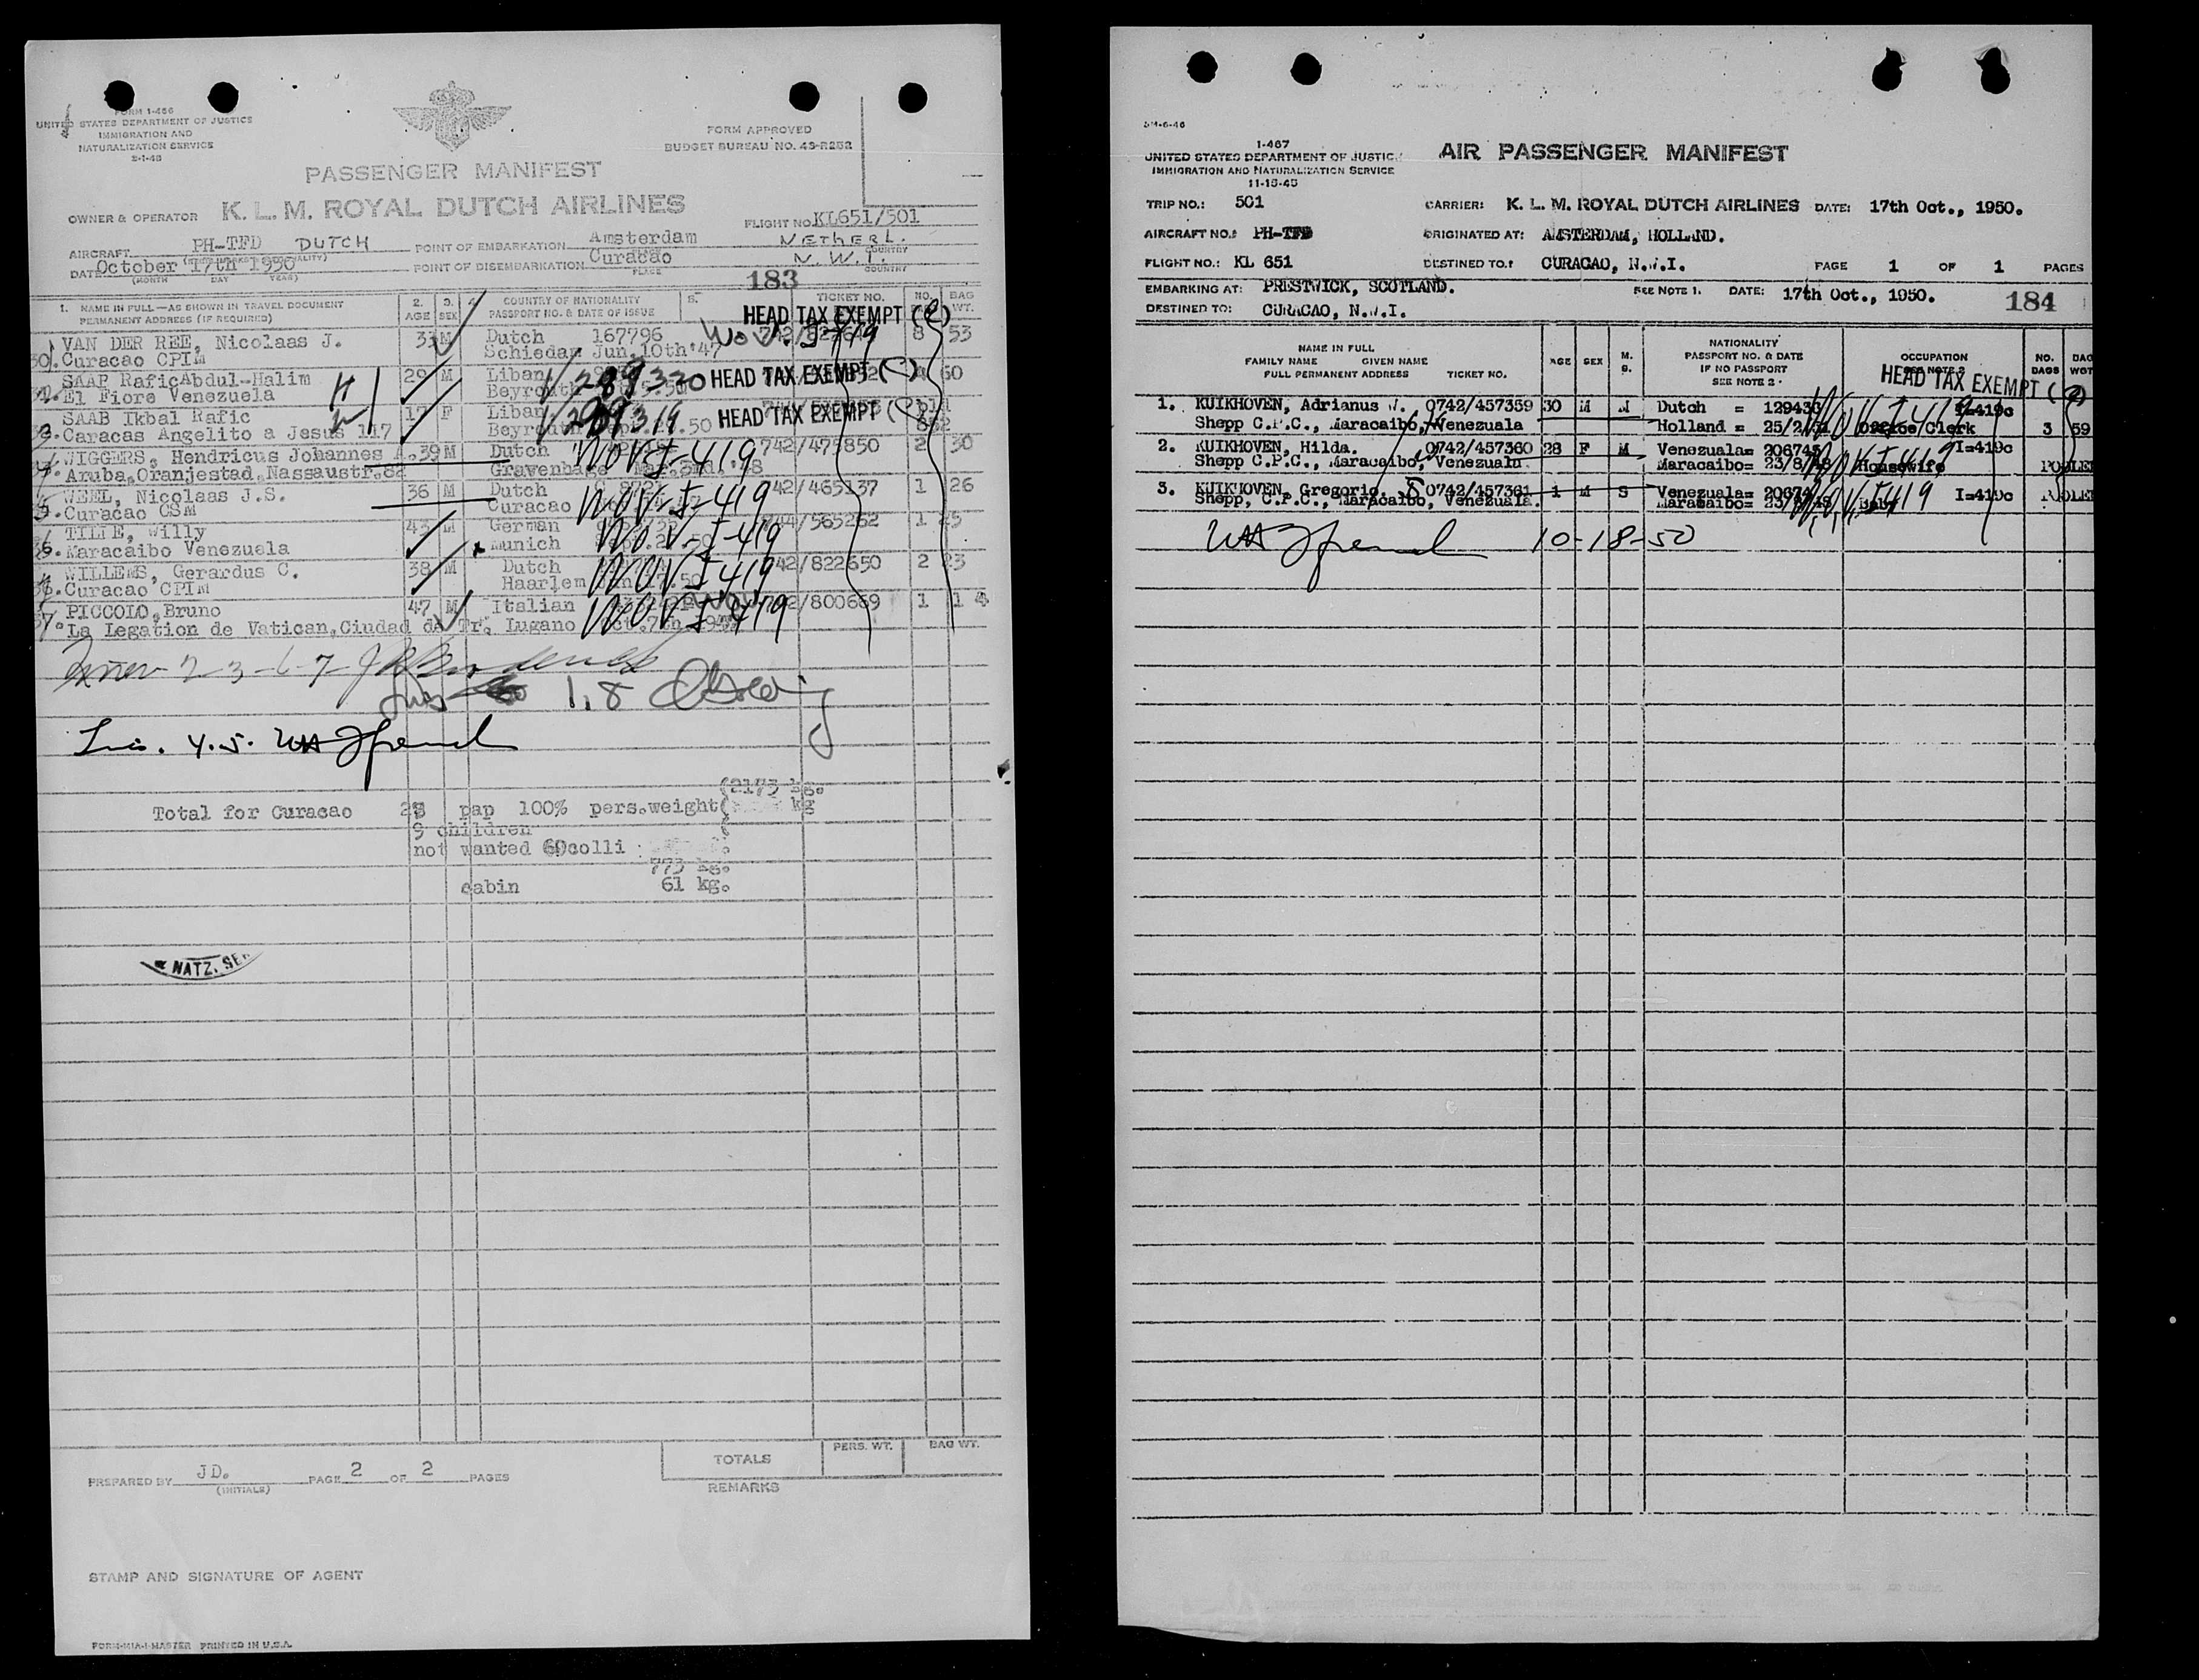 FORM 1-466
UNITED STATES DEPARTMENT OF JUSTICE
IMMIGRATION AND
NATURALIZATION SERVICE
2-1-48
FORM APPROVED
BUDGET BUREAU NO. 43-R252
PASSENGER MANIFEST
OWNER & OPERATOR K. L. M. ROYAL DUTCH AIRLINES
FLIGHT NO. KL651/501
AIRCRAFT PH-TFD DUTCH POINT OF EMBARKATION Amsterdam NETHERL. COUNTRY
DATE October 17th 1950 POINT OF DISEMBARKATION Curacao N.W.I.
(MONTH DAY YEAR) PLACE COUNTRY
183
1. NAME IN FULL—AS SHOWN IN TRAVEL DOCUMENT 2. 3. 4. COUNTRY OF NATIONALITY 5. TICKET NO. NO. BAG
PERMANENT ADDRESS (IF REQUIRED) AGE SEX PASSPORT NO. & DATE OF ISSUE WT.
HEAD TAX EXEMPT (2)
VAN DER REE, Nicolaas J. M Dutch 167796 8 53
Curacao CPIM Schiedam Jun.10th'47
SAAP RaficAbdul-Halim 29 M Liban 1/289320 HEAD TAX EXEMPT 60
El Fiore Venezuela Beyrouth
SAAB Ikbal Rafic 17 F Liban 1/289319 HEAD TAX EXEMPT
Caracas Angelito a Jesus 117 Beyrouth .50
WIGGERS, Hendricus Johannes A. 39 M Dutch WOV I-419 742/475850 2 30
Aruba,Oranjestad,Nassaustr.82 Gravenhage
WEEL, Nicolaas J.S. 36 M Dutch 742/465137 1 26
Curacao CSM Curacao WOV. I-419
Willy M German 565262 1
Maracaibo Venezuela Munich WOV. I-419
WILLEMS, Gerardus C. 38 M Dutch 742/822650 2 23
Curacao CPIM Haarlem .50 WOV I 419
PICCOLO,Bruno 47 M Italian 1
La Legation de Vatican,Ciudad de Tr. Lugano WOV I 419
1,8
Ins. 4.5.
Total for Curacao pap 100% pers.weight (2173 kg.
kg
9 children
not wanted 60colli :
773 kg.
cabin 61 kg.
NATZ. SER
TOTALS PERS. WT. BAG WT.
PREPARED BY JD. PAGE 2 OF 2 PAGES
(INITIALS)
REMARKS
STAMP AND SIGNATURE OF AGENT
FORM-MIA-1-MASTER PRINTED IN U.S.A.
1-467
UNITED STATES DEPARTMENT OF JUSTICE
IMMIGRATION AND NATURALIZATION SERVICE
11-15-45
AIR PASSENGER MANIFEST
TRIP NO.: 501 CARRIER: K. L. M. ROYAL DUTCH AIRLINES DATE: 17th Oct., 1950.
AIRCRAFT NO.: PH-TFD ORIGINATED AT: AMSTERDAM, HOLLAND.
FLIGHT NO.: KL 651 DESTINED TO: CURACAO, N.W.I. PAGE 1 OF 1 PAGES
EMBARKING AT: PRESTWICK, SCOTLAND. SEE NOTE 1. DATE: 17th Oct., 1950.
184
DESTINED TO: CURACAO, N.W.I.
NAME IN FULL
FAMILY NAME GIVEN NAME
FULL PERMANENT ADDRESS TICKET NO.
AGE SEX M. S.
NATIONALITY
PASSPORT NO. & DATE
IF NO PASSPORT
SEE NOTE 2
OCCUPATION
SEE NOTE 3
NO. BAGS
BAG WGT
HEAD TAX EXEMPT (2)
1. KUIKHOVEN, Adrianus W. 0742/457359 30 M M Dutch = I=419c
Shepp C.P.C., Maracaibo, Venezuela Holland = Office Clerk 3 59
2. KUIKHOVEN, Hilda. 0742/457360 28 F M Venezuala= 206745 I=419c
Shepp C.P.C., Maracaibo, Venezuala. Maracaibo= 23/8/48 Housewife POOLED
3. KUIKHOVEN, Gregorio. 0742/457361 1 M S Venezuala= I=419c
Shepp, C.P.C., Maracaibo, Venezuala. Maracaibo= Baby POOLED
10-18-50